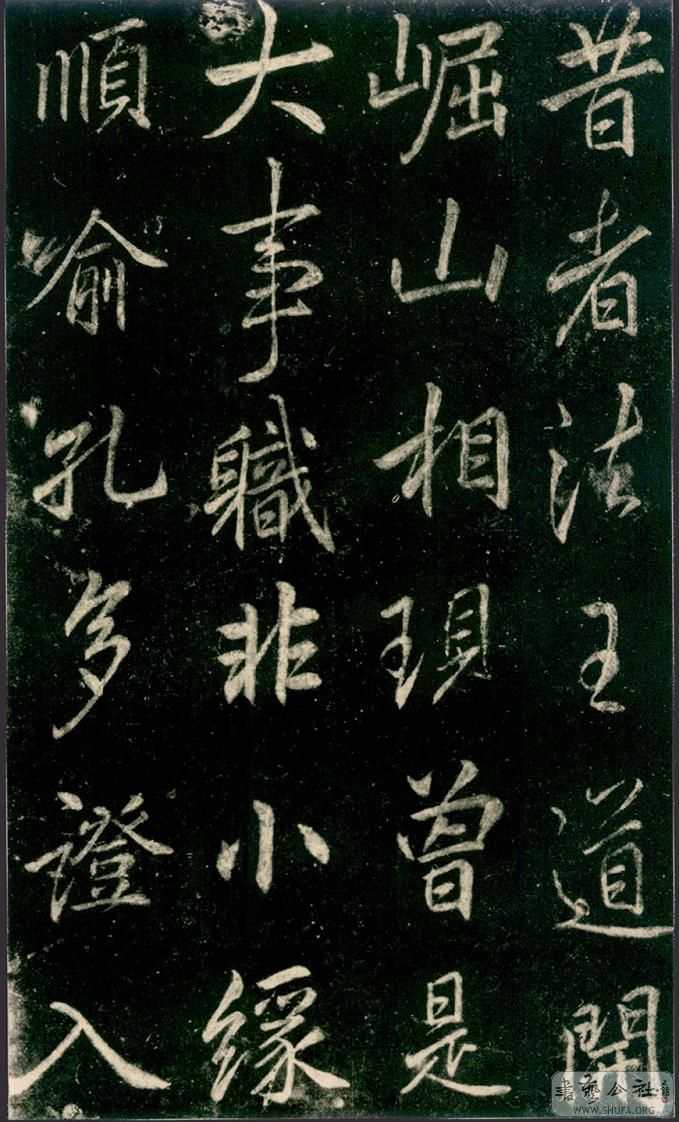 昔者法王道開
崛山相現曾是
大事職非小緣
順喻孔多證入
書藝公社
WWW.SHUFA.ORG